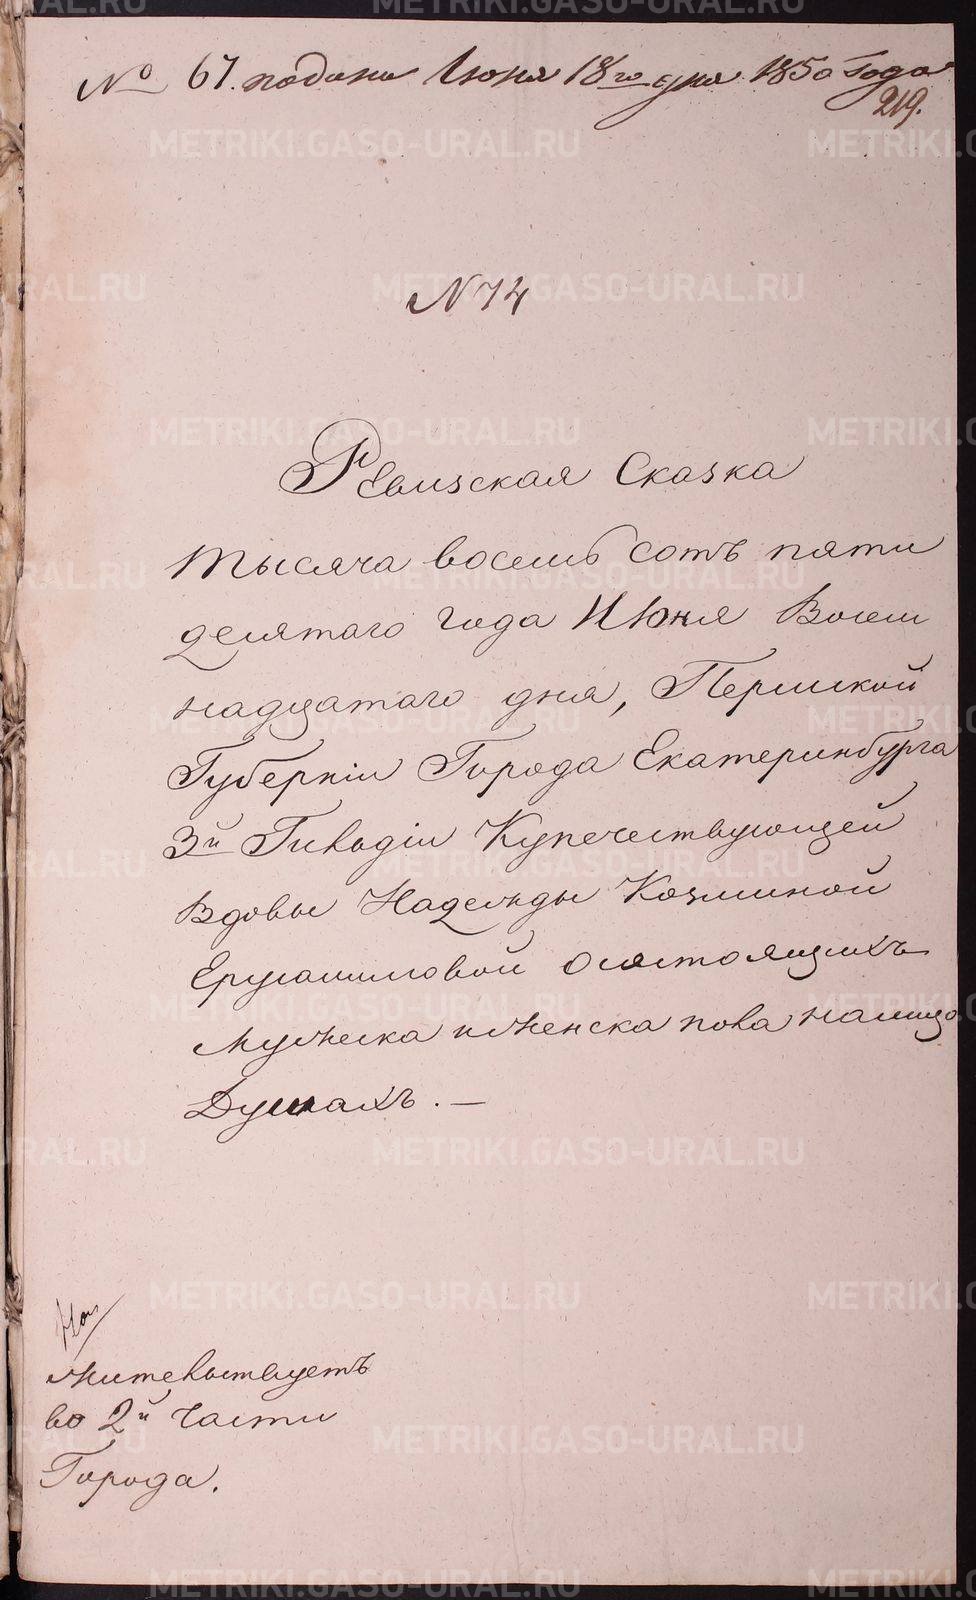 № 67. подана Іюня 18го дня 1850 Года
219.
N 74
Ревизская Сказка
тысяча восемь сотъ пяти
десятаго года Июня Восем
надцатаго дня, Пермской
Губерніи Города Екатеринбурга
3й Гильдіи Купечествующей
Вдовы Надежды Козминой
Ерусалимовой осостоящихъ
Мужеска иженска пола налицо
Душахъ. —
Жительствуетъ
во 2й части
Города.
METRIKI.GASO-URAL.RU